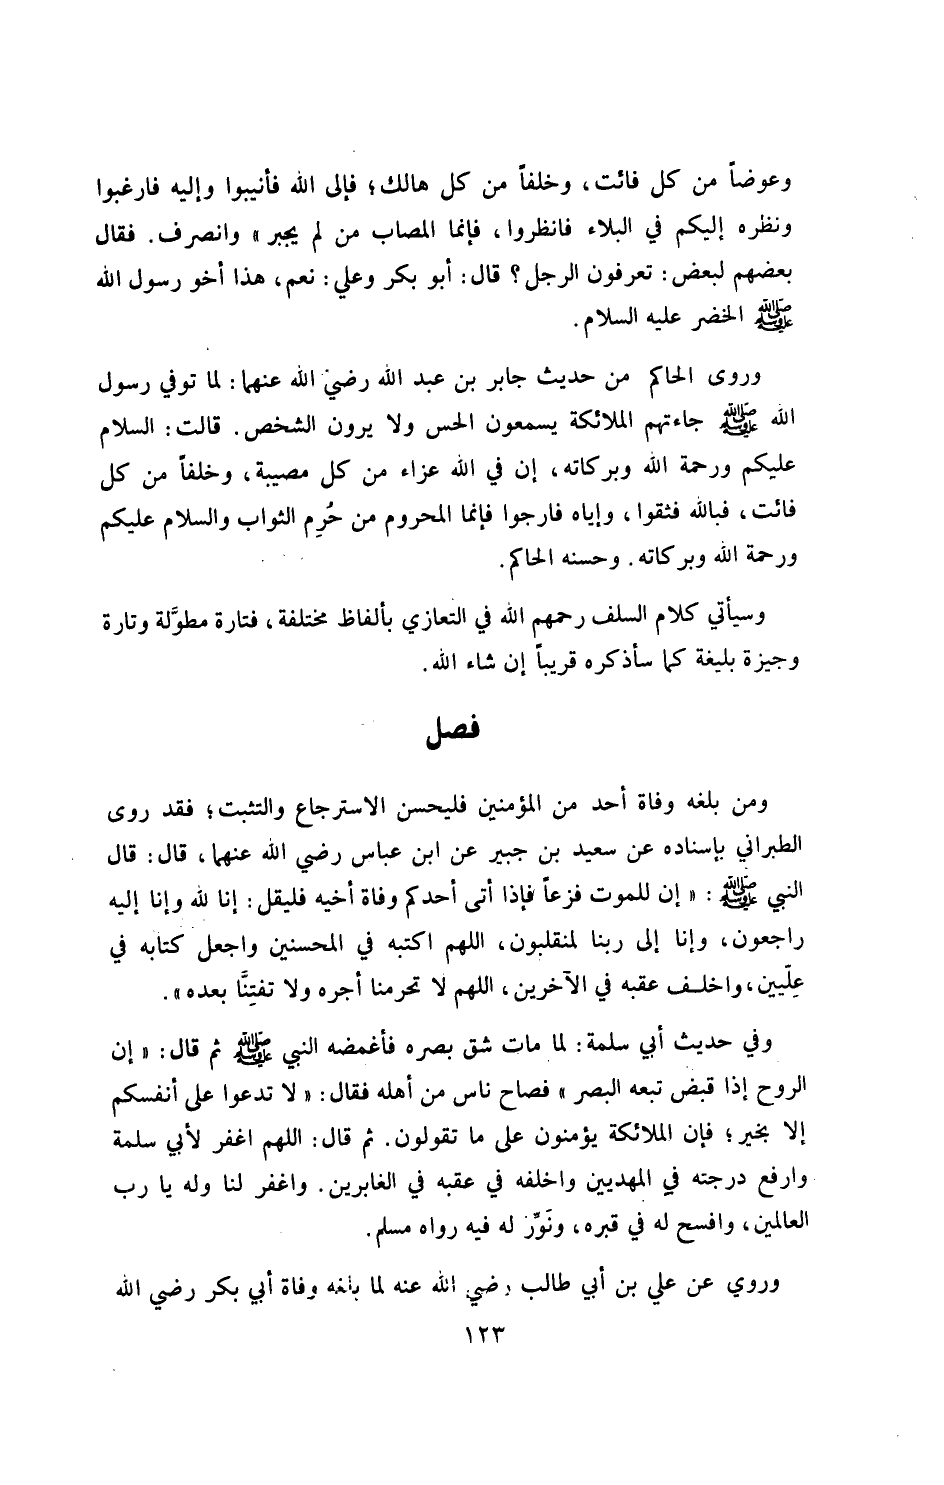 وعوضاً من كل فائت، وخلفاً من كل هالك؛ فإلى الله فأنيبوا وإليه فارغبوا
ونظره إليكم في البلاء فانظروا، فإنما المصاب من لم يجبر» وانصرف. فقال
بعضهم لبعض: تعرفون الرجل؟ قال: أبو بكر وعلي: نعم، هذا أخو رسول الله
ﷺ الخضر عليه السلام.
وروى الحاكم من حديث جابر بن عبد الله رضي الله عنهما: لما توفي رسول
الله ﷺ جاءتهم الملائكة يسمعون الحس ولا يرون الشخص. قالت: السلام
عليكم ورحمة الله وبركاته، إن في الله عزاء من كل مصيبة، وخلفاً من كل
فائت، فبالله فثقوا، وإياه فارجوا فإنما المحروم من حُرِم الثواب والسلام عليكم
ورحمة الله وبركاته. وحسنه الحاكم.
وسيأتي كلام السلف رحمهم الله في التعازي بألفاظ مختلفة، فتارة مطوَّلة وتارة
وجيزة بليغة كما سأذكره قريباً إن شاء الله.
فصل
ومن بلغه وفاة أحد من المؤمنين فليحسن الاسترجاع والتثبت؛ فقد روى
الطبراني بإسناده عن سعيد بن جبير عن ابن عباس رضي الله عنهما، قال: قال
النبي ﷺ: «إن للموت فزعاً فإذا أتى أحدكم وفاة أخيه فليقل: إنا لله وإنا إليه
راجعون، وإنا إلى ربنا لمنقلبون، اللهم اكتبه في المحسنين واجعل كتابه في
عِلّيين، واخلف عقبه في الآخرين، اللهم لا تحرمنا أجره ولا تفتِنَّا بعده».
وفي حديث أبي سلمة: لما مات شق بصره فأغمضه النبي ﷺ ثم قال: «إن
الروح إذا قبض تبعه البصر» فصاح ناس من أهله فقال: «لا تدعوا على أنفسكم
إلا بخير؛ فإن الملائكة يؤمنون على ما تقولون. ثم قال: اللهم اغفر لأبي سلمة
وارفع درجته في المهديين واخلفه في عقبه في الغابرين. واغفر لنا وله يا رب
العالمين، وافسح له في قبره، ونَوِّر له فيه رواه مسلم.
وروي عن علي بن أبي طالب رضي الله عنه لما بلغه وفاة أبي بكر رضي الله
١٢٣